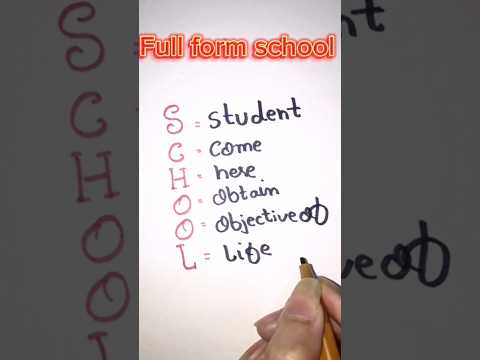 Full form school
S = Student
C = Come
H = here
O = Obtain
O = Objective of
L = Life